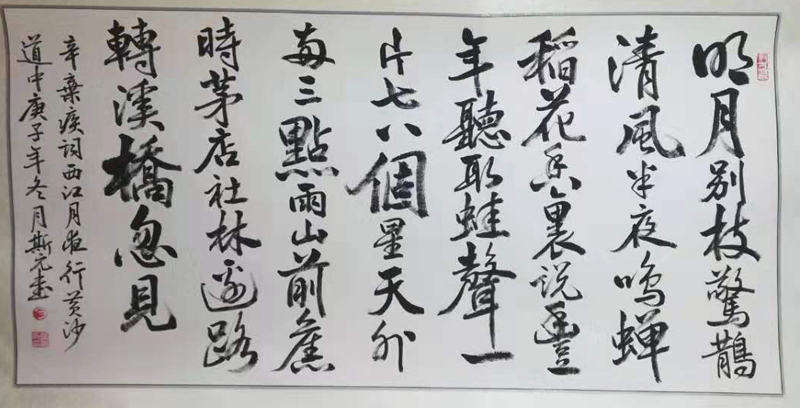 明月别枝驚鵲
清風半夜鳴蝉
稻花香裏説豊
年聽取蛙聲一
片七八個星天外
两三點雨山前舊
時茅店社林邊路
轉溪橋忽見
辛棄疾詞西江月夜行黄沙
道中庚子年冬月斯元書